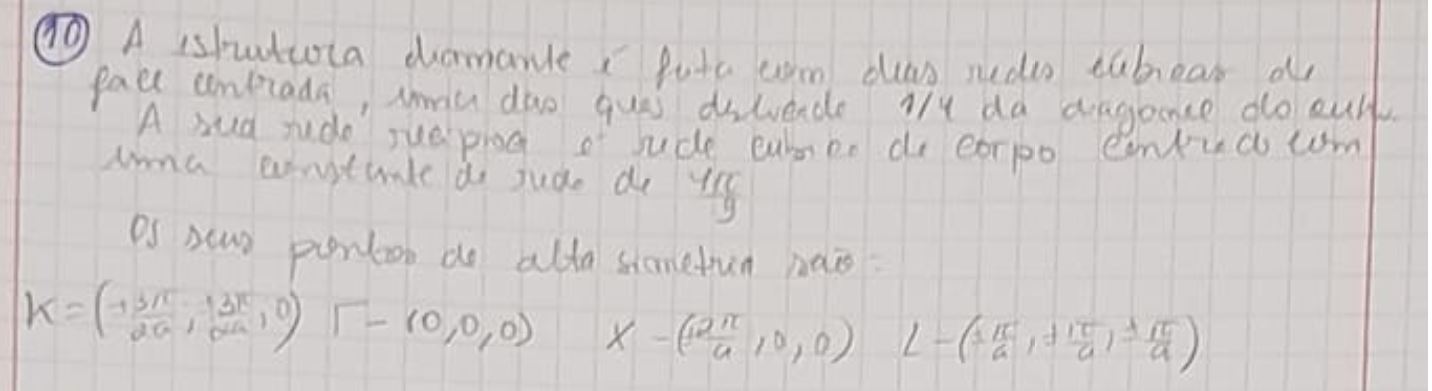 (10) A estrutura diamante é feita com duas redes cúbicas de
face centrada, uma das quais deslocada 1/4 da diagonal do cubo.
A sua rede recíproca é rede cúbica de corpo centrado com
uma constante de rede de 4π/a
Os seus pontos de alta simetria são:
K = (±3π/2a, ±3π/2a, 0) Γ - (0,0,0) X - (±2π/a, 0, 0) L - (±π/a, ±π/a, ±π/a)